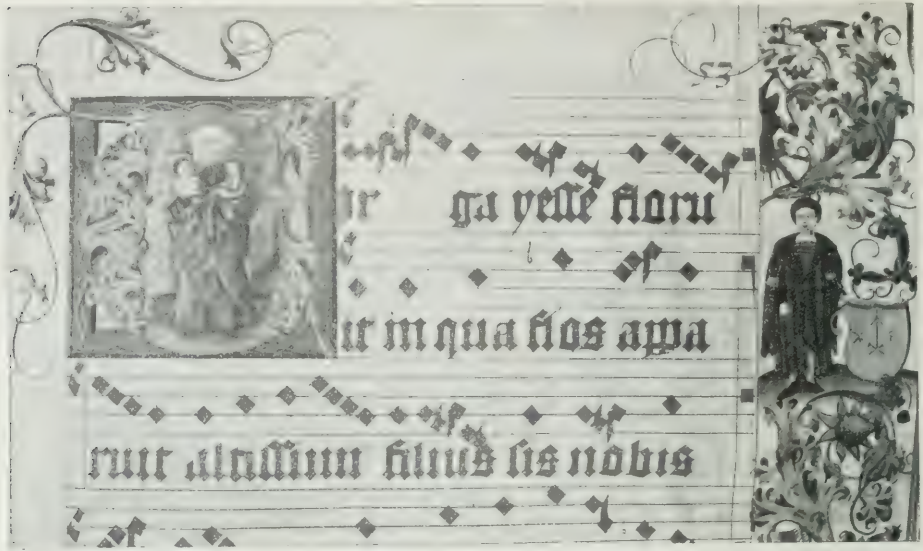 ir ga yesse floru
it in qua flos appa
ruit altissimi filius sis nobis